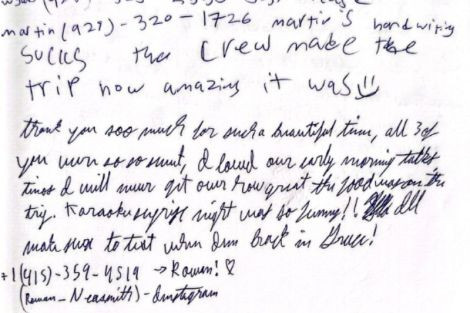 martin (929)-320-1726 martin's handwriting
sucks the crew made the
trip how amazing it was
thank you soo much for such a beautiful time, all 3 of
you were so so sweet, I loved our early morning
times I will never get over how great the food was on the
trip. Karaoke night was so funny!! Ill
make sure to text when I'm back in
+1(415)-359-4519 → Rowan! ♡
(Rowan_Neasmith)-Instagram